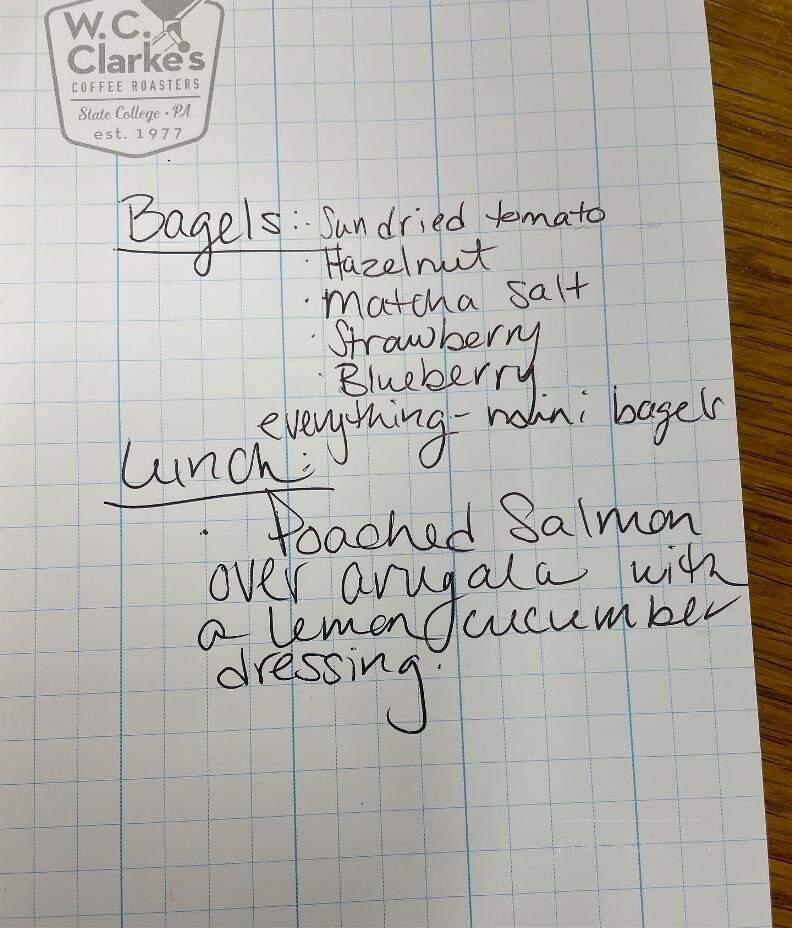 W.C.
Clarke's
COFFEE ROASTERS
State College • PA
est. 1977
Bagels: · Sun dried tomato
· Hazelnut
· Matcha Salt
· Strawberry
· Blueberry
everything - bagels
Lunch:
· Poached Salmon
over arugala with
a lemon/cucumber
dressing.